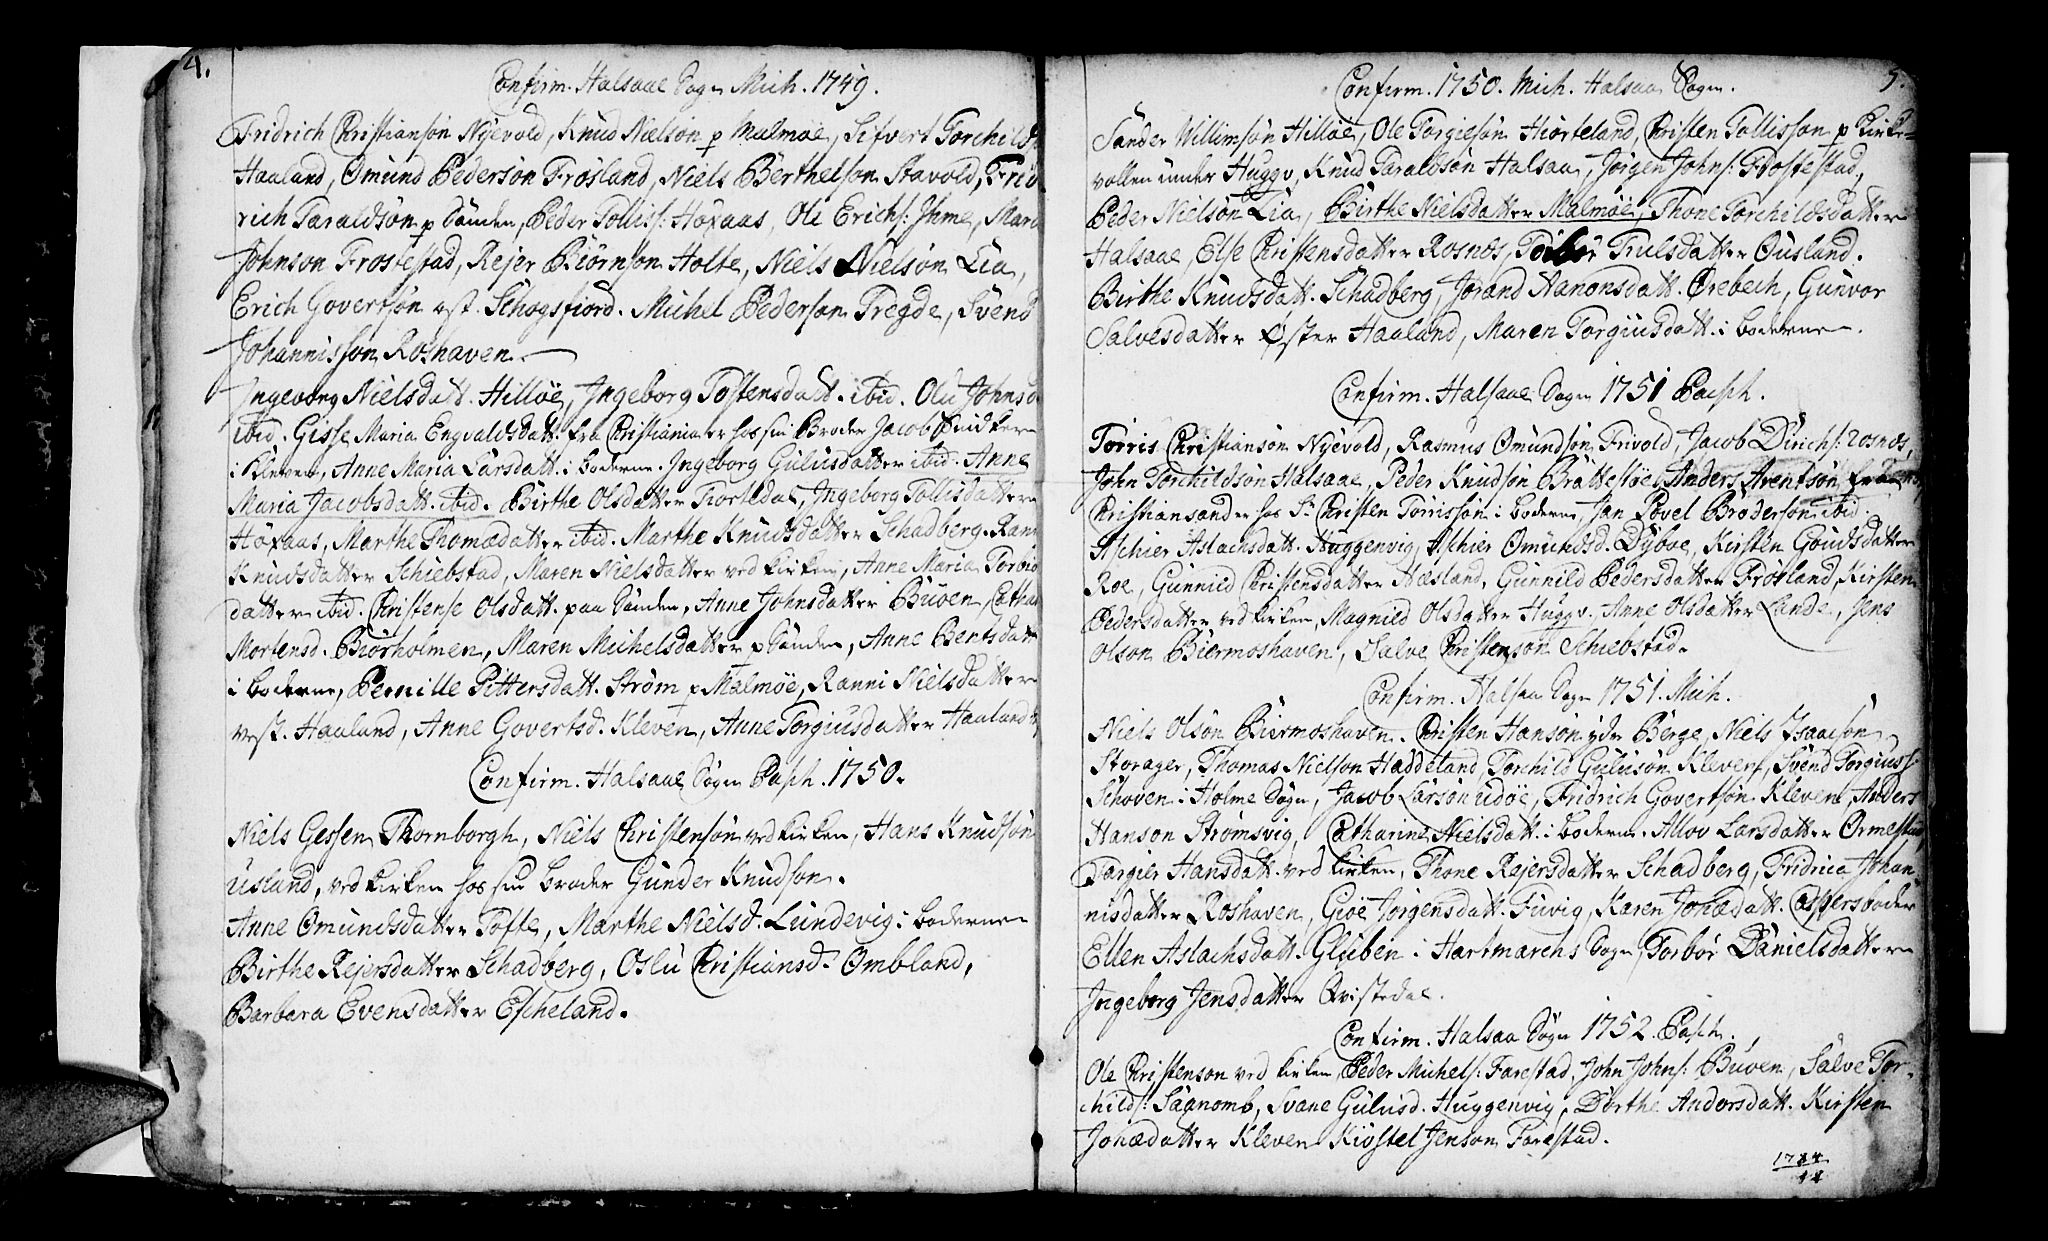 4.
Confirm. Halsaae Sogn Mich. 1749.
Fridrich Christiansön Nyevold, Knud Nielsön p Malmöe, Sifvert Torchilds
Haaland, Omund Pedersön Frösland, Niels Berthelson Stavold, Frid
rich Taraldsön p Sanden, Peder Tolliss: Höxaas, Ole Erichs: Ihme,
Johnson Frostestad, Rejer Biörnson Holte, Niels Nielsön Lia,
Erich Govertsön ost. Schogsfiord. Michel Pederson Tregde, Svend
Johannisson Roshaven.
Ingeborg Nielsdatt. Hillöe, Ingeborg Tostensdatt. ibid. Olu Johnsd
ibid. Gisse Maria Engvaldsdatt. fra Christiania er hos sin Broder Jacob
i Kleven, Anne Maria Larsdatt. i boderne. Ingeborg Gulusdatter ibid. Anne
Maria Jacobsdatt. ibid. Birthe Olsdatter Tiortedal, Ingeborg Tollisdatter
Höxaas, Marthe Thomædatter ibid. Marthe Knudsdatter Schadberg. Rann
Knudsdatter Schiebstad, Maren Nielsdatter ved kirken, Anne Maria Torbiö
datter ibid. Christense Olsdatt. paa Sanden, Anne Johnsdatter Buven, Catha
Mortensd. Biörholmen, Maren Michelsdatter p Sanden, Anne Bentsdatt
i boderne, Pernille Pittersdatt. Ström p Malmöe, Ranni Nielsdatter
vest. Haaland, Anne Govertsd. Kleven, Anne Torgiusdatter Haaland
Confirm. Halsaae Sogn Pasch. 1750.
Niels Gessen Thornborgh, Niels Christensön ved kirken, Hans Knudsön
Usland, ved kirken hos sin broder Gunder Knudson.
Anne Omundsdatter Tofte, Marthe Nielsd. Lundevig i boderne
Birthe Rejersdatter Schadberg, Oslu Christiansd. Ombland,
Barbara Evensdatter Escheland.
5.
Confirm. 1750. Mich. Halsaa Sogn.
Sander Willimsön Hillöe, Ole Torgiesön Hiorteland, Christen Tollisson p Kirke-
vollen under Huggv, Knud Taraldsön Halsaa, Jörgen Johns: Frostestad,
Peder Nielsön Lia, Birthe Nielsdatter Malmöe, Thone Torchildsdatter
Halsaae, Else Christensdatter Rosnes, Torbor Trulsdatter Ousland.
Birthe Knudsdatt. Schadberg, Jorand Aanonsdatt. Örebech, Gunvor
Salvesdatter Öster Haaland, Maren Torgiusdatt. i boderne.
Confirm. Halsaae Sogn 1751 Pasch.
Torris Christiansön Nyevold, Rasmus Omundsön Frivold, Jacob Dirichs: Rosnæs,
John Torchildsön Halsaae, Peder Knudsön Brattestöe, Anders Arentsön fra
Christiansand er hos Sr Christen Törrissön i boderne, Jan Povel Bröderson ibid.
Aschier Aslachsdatt. Huggenvig, Aschier Omundsd. Dybve, Kirsten Goudsdatter
Roe, Gunnild Christensdatter Næsland, Gunnild Pedersdatter Frösland, Kirsten
Pedersdatter ved kirken, Magnild Olsdatter Huggv. Anne Olsdatter Lande, Jens
Olson Biermoshaven, Salve Christenson Schiebstad.
Confirm. Halsaa Sogn 1751. Mich.
Niels Olsön Biermoshaven. Christen Hansön ydr Berge, Niels Isaacsön
Storager, Thomas Nielson Haddeland, Torchild Gulusön Kleven, Svend Torgiuss
Schoven i Holme Sogn, Jacob Larson Udöe, Fridrich Govertsön Kleven, Anders
Hanson Strömsvig, Catharine Nielsdatt. i boderne. Allov Larsdatter Ormestad,
Targier Hansdatt. ved kirken, Thone Rejersdatter Schadberg, Fridrica Johan
nisdatter Roshaven, Giöe Jörgensdatt. Fuvig, Karen Johædatt. Caspersboder
Ellen Aslachsdatt. Gluben i Hartmarchs Sogn, Torbör Danielsdatter
Ingeborg Jensdatter Qvistedal.
Confirm. Halsaa Sogn 1752. Pasch.
Ole Christenson ved kirken, Peder Michels: Farestad, John Johns: Buven, Salve Tor-
childs: Saanomb, Svane Gulusd. Huggenvig, Dorthe Andersdatt. Kirsten
Johædatter Kleven Kiostel Jenson Farestad.